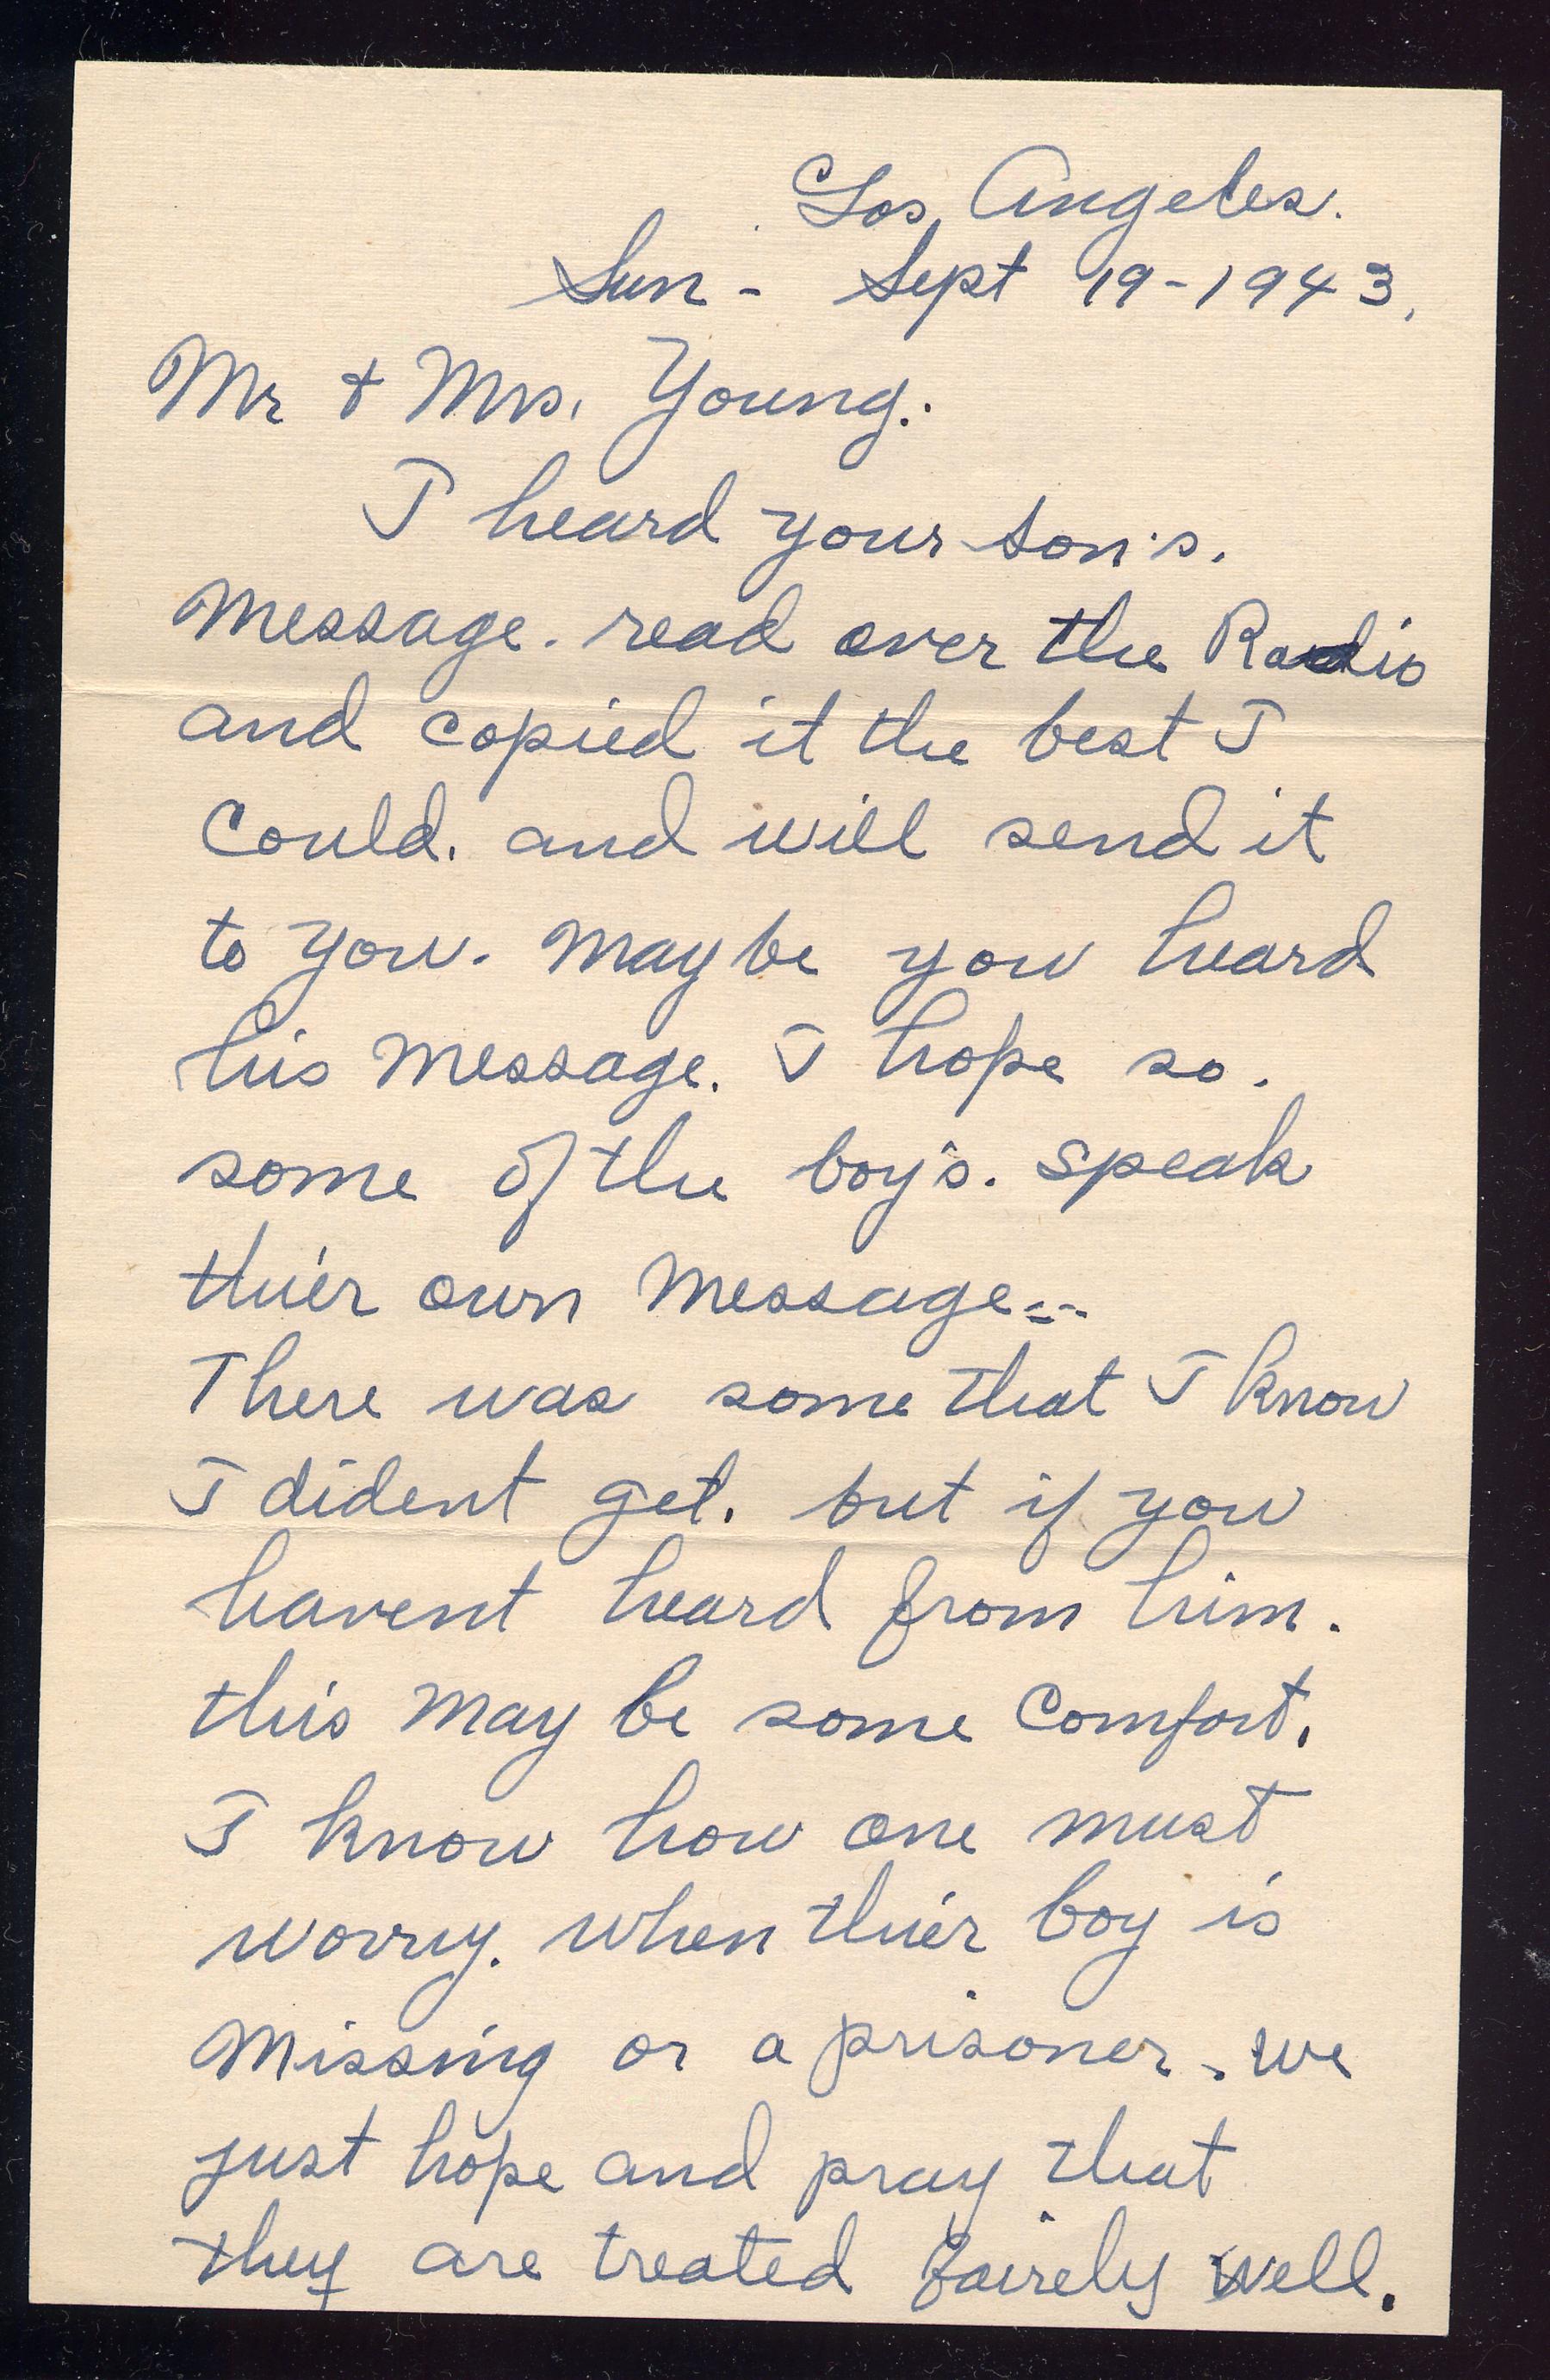 Los Angeles.
Sun - Sept 19-1943.
Mr & Mrs. Young.
I heard your son's.
Message. read over the Radio
and copied it the best I
Could. and will send it
to you. May be you heard
his Message. I hope so.
some of the boy's. speak
thier own Message--
There was some that I know
I dident get. but if you
havent heard from him.
this May be some Comfort.
I know how one must
worry. when thier boy is
Missing or a prisoner. we
just hope and pray that
they are treated fairely well.